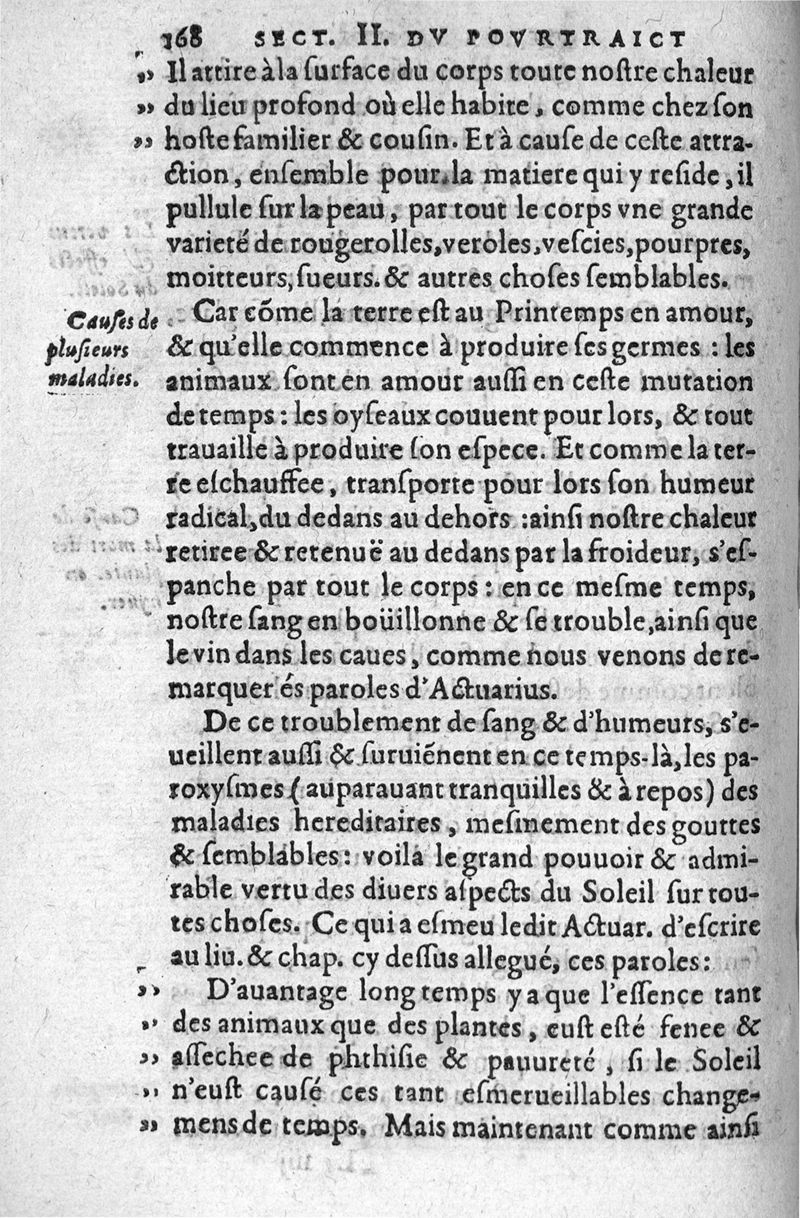 168 SECT. II. DV POVRTRAICT
„ Il attire à la ſurface du corps toute noſtre chaleur
„ du lieu profond où elle habite, comme chez ſon
„ hoſte familier & couſin. Et à cauſe de ceſte attra-
ction, enſemble pour la matiere qui y reſide, il
pullule ſur la peau, par tout le corps vne grande
varieté de rougerolles, veroles, veſcies, pourpres,
moitteurs, ſueurs. & autres choſes ſemblables.
Cauſes de
pluſieurs
maladies.
Car cõme la terre eſt au Printemps en amour,
& qu'elle commence à produire ſes germes : les
animaux ſont en amour auſſi en ceſte mutation
de temps : les oyſeaux couuent pour lors, & tout
trauaille à produire ſon eſpece. Et comme la ter-
re eſchauffee, tranſporte pour lors ſon humeur
radical, du dedans au dehors : ainſi noſtre chaleur
retiree & retenuë au dedans par la froideur, s'eſ-
panche par tout le corps : en ce meſme temps,
noſtre ſang en boüillonne & ſe trouble, ainſi que
le vin dans les caues, comme nous venons de re-
marquer és paroles d'Actuarius.
De ce troublement de ſang & d'humeurs, s'e-
ueillent auſſi & ſuruiénent en ce temps-là, les pa-
roxyſmes (auparauant tranquilles & à repos) des
maladies hereditaires, meſmement des gouttes
& ſemblables : voila le grand pouuoir & admi-
rable vertu des diuers aſpects du Soleil ſur tou-
tes choſes. Ce qui a eſmeu ledit Actuar. d'eſcrire
au liu. & chap. cy deſſus allegué, ces paroles :
„ D'auantage long temps y a que l'eſſence tant
„ des animaux que des plantes, euſt eſté fenee &
„ aſſechee de phthiſie & pauureté, ſi le Soleil
„ n'euſt cauſé ces tant eſmerueillables change-
„ mens de temps. Mais maintenant comme ainſi